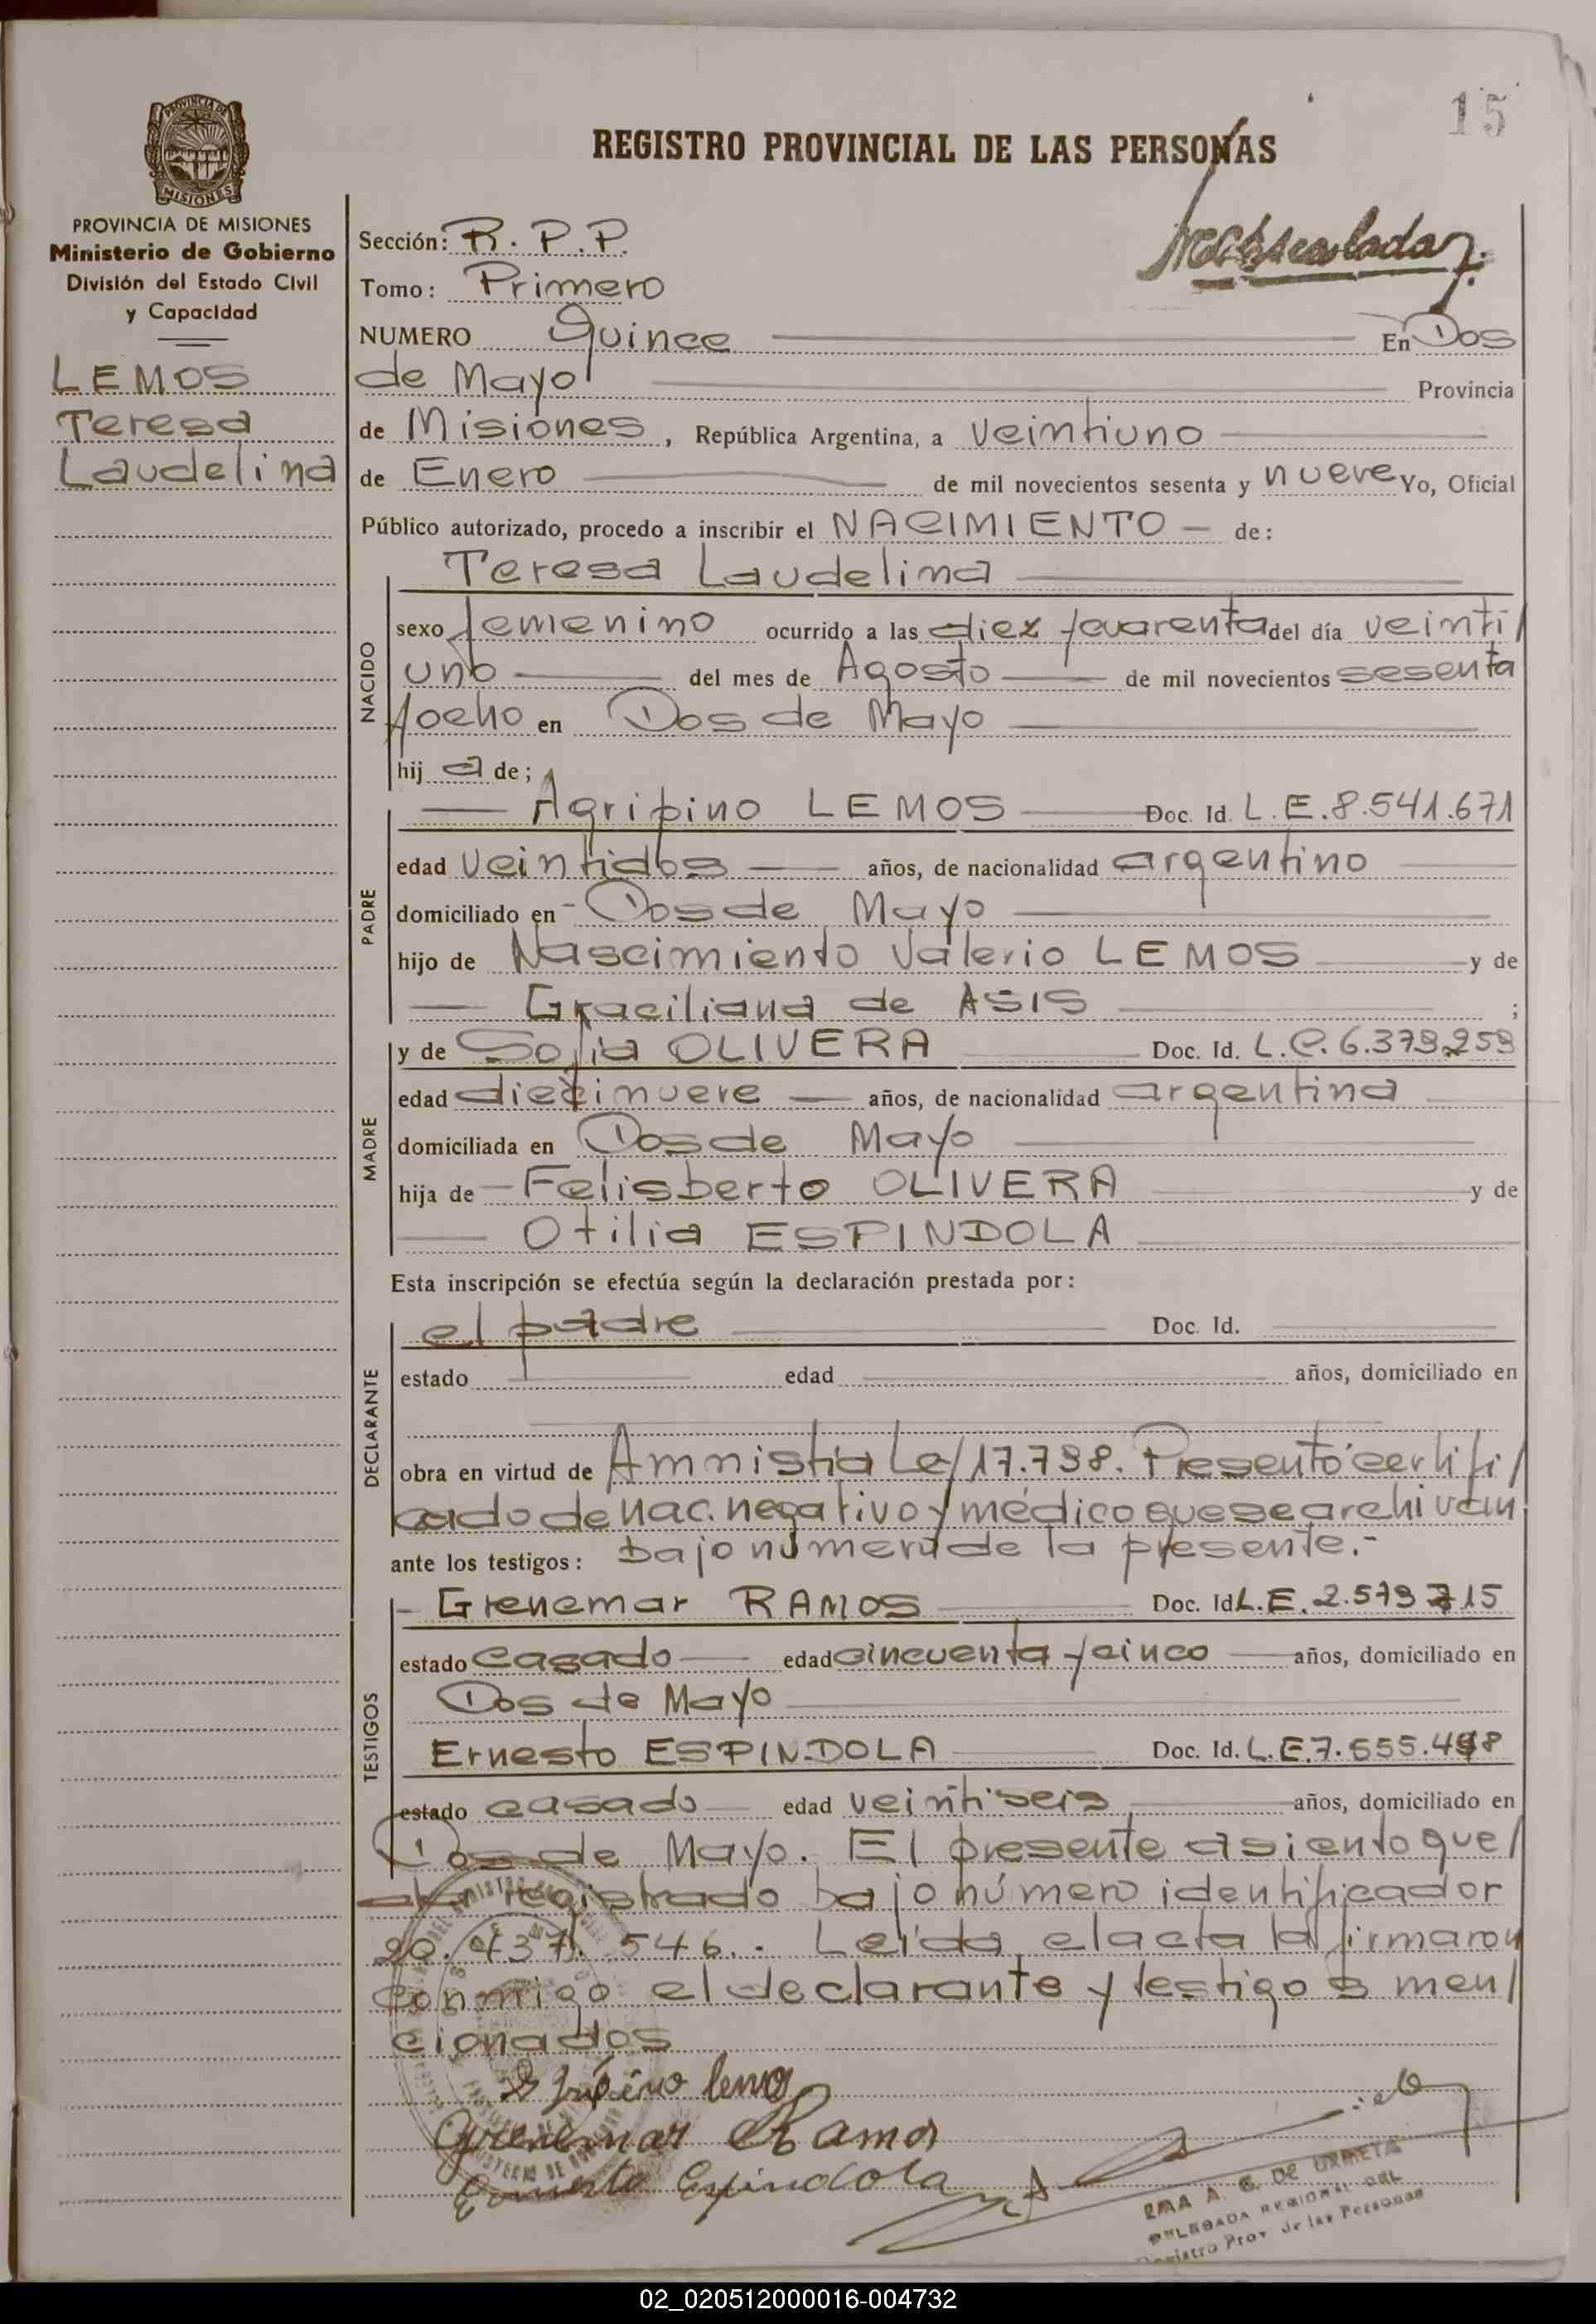 15
REGISTRO PROVINCIAL DE LAS PERSONAS
PROVINCIA DE
MISIONES
PROVINCIA DE MISIONES
Ministerio de Gobierno
División del Estado Civil
y Capacidad
LEMOS
Teresa
Laudelina
Sección: R. P. P.
Tomo: Primero
NUMERO Quince En Dos
de Mayo Provincia
de Misiones, República Argentina, a veintiuno
de Enero de mil novecientos sesenta y nueve Yo, Oficial
Público autorizado, procedo a inscribir el NACIMIENTO de:
Teresa Laudelina
NACIDO
sexo femenino ocurrido a las diez y cuarenta del día veinti/
uno del mes de Agosto de mil novecientos sesenta
y ocho en Dos de Mayo
hij a de;
PADRE
Agripino LEMOS Doc. Id. L.E. 8.541.671
edad veintidos años, de nacionalidad argentino
domiciliado en Dos de Mayo
hijo de Nascimiento Valerio LEMOS y de
Graciliana de ASIS ;
MADRE
y de Sofia OLIVERA Doc. Id. L.C. 6.379.259
edad diecinueve años, de nacionalidad argentina
domiciliada en Dos de Mayo
hija de Felisberto OLIVERA y de
Otilia ESPINDOLA
Esta inscripción se efectúa según la declaración prestada por:
DECLARANTE
el padre Doc. Id.
estado edad años, domiciliado en
obra en virtud de Amnistia Ley 17.798. Presentó certifi/
cado de nac. negativo y médico que se archivan
ante los testigos: bajo número de la presente.-
TESTIGOS
Grenemar RAMOS Doc. Id. L.E. 2.579.715
estado casado edad cincuenta y cinco años, domiciliado en
Dos de Mayo
Ernesto ESPINDOLA Doc. Id. L.E. 7.555.498
estado casado edad veintiseis años, domiciliado en
Dos de Mayo. El presente asiento que/
da registrado bajo número identificador
20.437.546.. Leída el acta la firmaron
conmigo el declarante y testigos men/
cionados
Grenemar Ramos
Ernesto Espindola
DE URRETA
DELEGADA REGIONAL DEL
Registro Prov. de las Personas
02_020512000016-004732